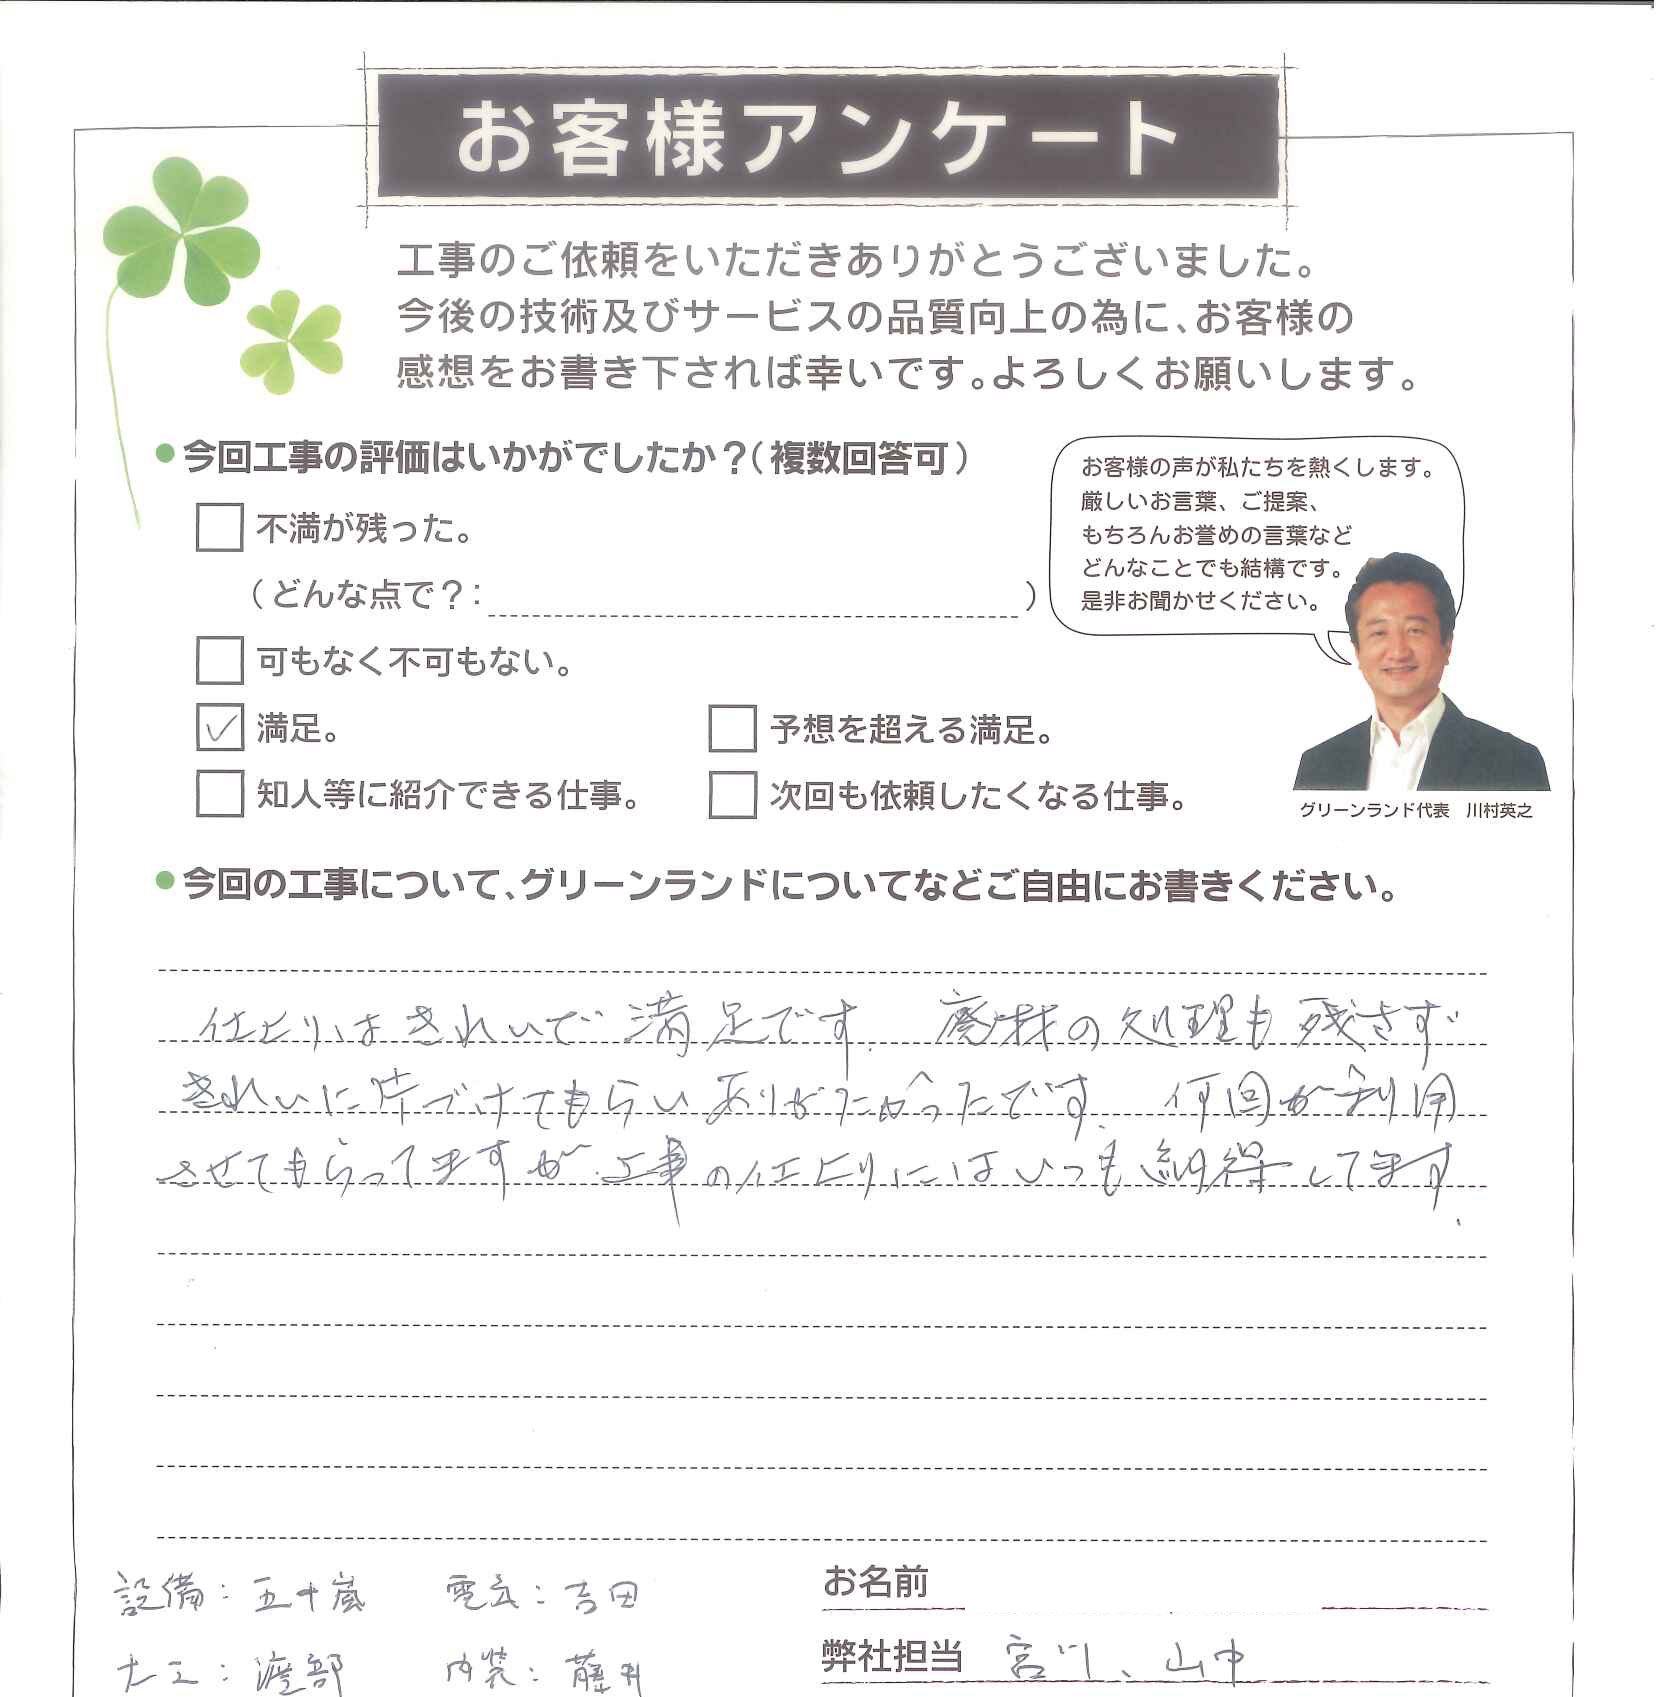 お客様アンケート
工事のご依頼をいただきありがとうございました。
今後の技術及びサービスの品質向上の為に、お客様の
感想をお書き下されば幸いです。よろしくお願いします。
●今回工事の評価はいかがでしたか？（複数回答可）
不満が残った。
（どんな点で？：　）
可もなく不可もない。
✓ 満足。
予想を超える満足。
知人等に紹介できる仕事。
次回も依頼したくなる仕事。
お客様の声が私たちを熱くします。
厳しいお言葉、ご提案、
もちろんお誉めの言葉など
どんなことでも結構です。
是非お聞かせください。
グリーンランド代表　川村英之
●今回の工事について、グリーンランドについてなどご自由にお書きください。
仕上りはきれいで満足です。廃材の処理も残さず
きれいに片づけてもらいありがたかったです。何回か利用
させてもらってますが工事の仕上りにはいつも納得してます.
設備：五十嵐　電気：吉田
大工：渡部　内装：藤井
お名前
弊社担当　宮川、山中